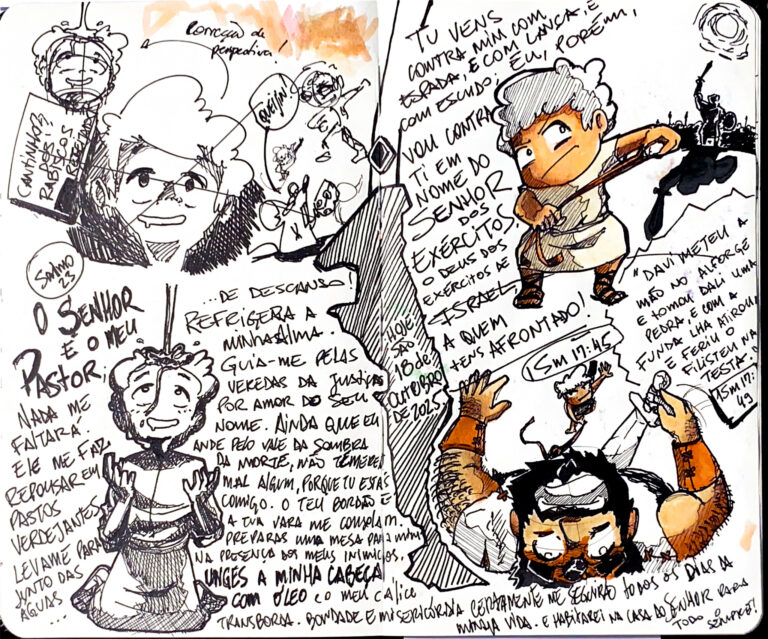 CORREÇÃO DE
perspectiva!
CAMINHOS,
RABISCOS,
SALMO
23
O SENHOR
É O MEU
PASTOR,
NADA ME
FALTARÁ.
ELE ME FAZ
REPOUSAR EM
PASTOS
VERDEJANTES.
LEVA-ME PARA
JUNTO DAS
ÁGUAS...
...DE DESCANSO!
REFRIGERA A
MINHA ALMA.
GUIA-ME PELAS
VEREDAS DA JUSTIÇA
POR AMOR DO SEU
NOME. AINDA QUE EU
ANDE PELO VALE DA SOMBRA
DA MORTE, NÃO TEMEREI
MAL ALGUM, PORQUE TU ESTÁS
COMIGO. O TEU BORDÃO E
A TUA VARA ME CONSOLAM.
PREPARAS UMA MESA PARA MIM
NA PRESENÇA DOS MEUS INIMIGOS.
UNGES A MINHA CABEÇA
COM ÓLEO E O MEU CÁLICE
TRANSBORDA. BONDADE E MISERICÓRDIA CERTAMENTE ME SEGUIRÃO TODOS OS DIAS DA
MINHA VIDA. E HABITAREI NA CASA DO SENHOR PARA
TODO O SEMPRE!
TU VENS
CONTRA MIM COM
ESPADA, E COM LANÇA, E
COM ESCUDO; EU, PORÉM,
VOU CONTRA
TI EM
NOME DO
SENHOR
DOS
EXÉRCITOS,
O DEUS DOS
EXÉRCITOS DE
ISRAEL,
A QUEM
TENS AFRONTADO!
1Sm 17:45
HOJE
SÃO
18 de
OUTUBRO
DE 2023
"DAVI METEU A
MÃO NO ALFORGE
E TOMOU DALI UMA
PEDRA E COM A
FUNDA LHA ATIROU
E FERIU O
FILISTEU NA
TESTA.
1Sm 17:
49